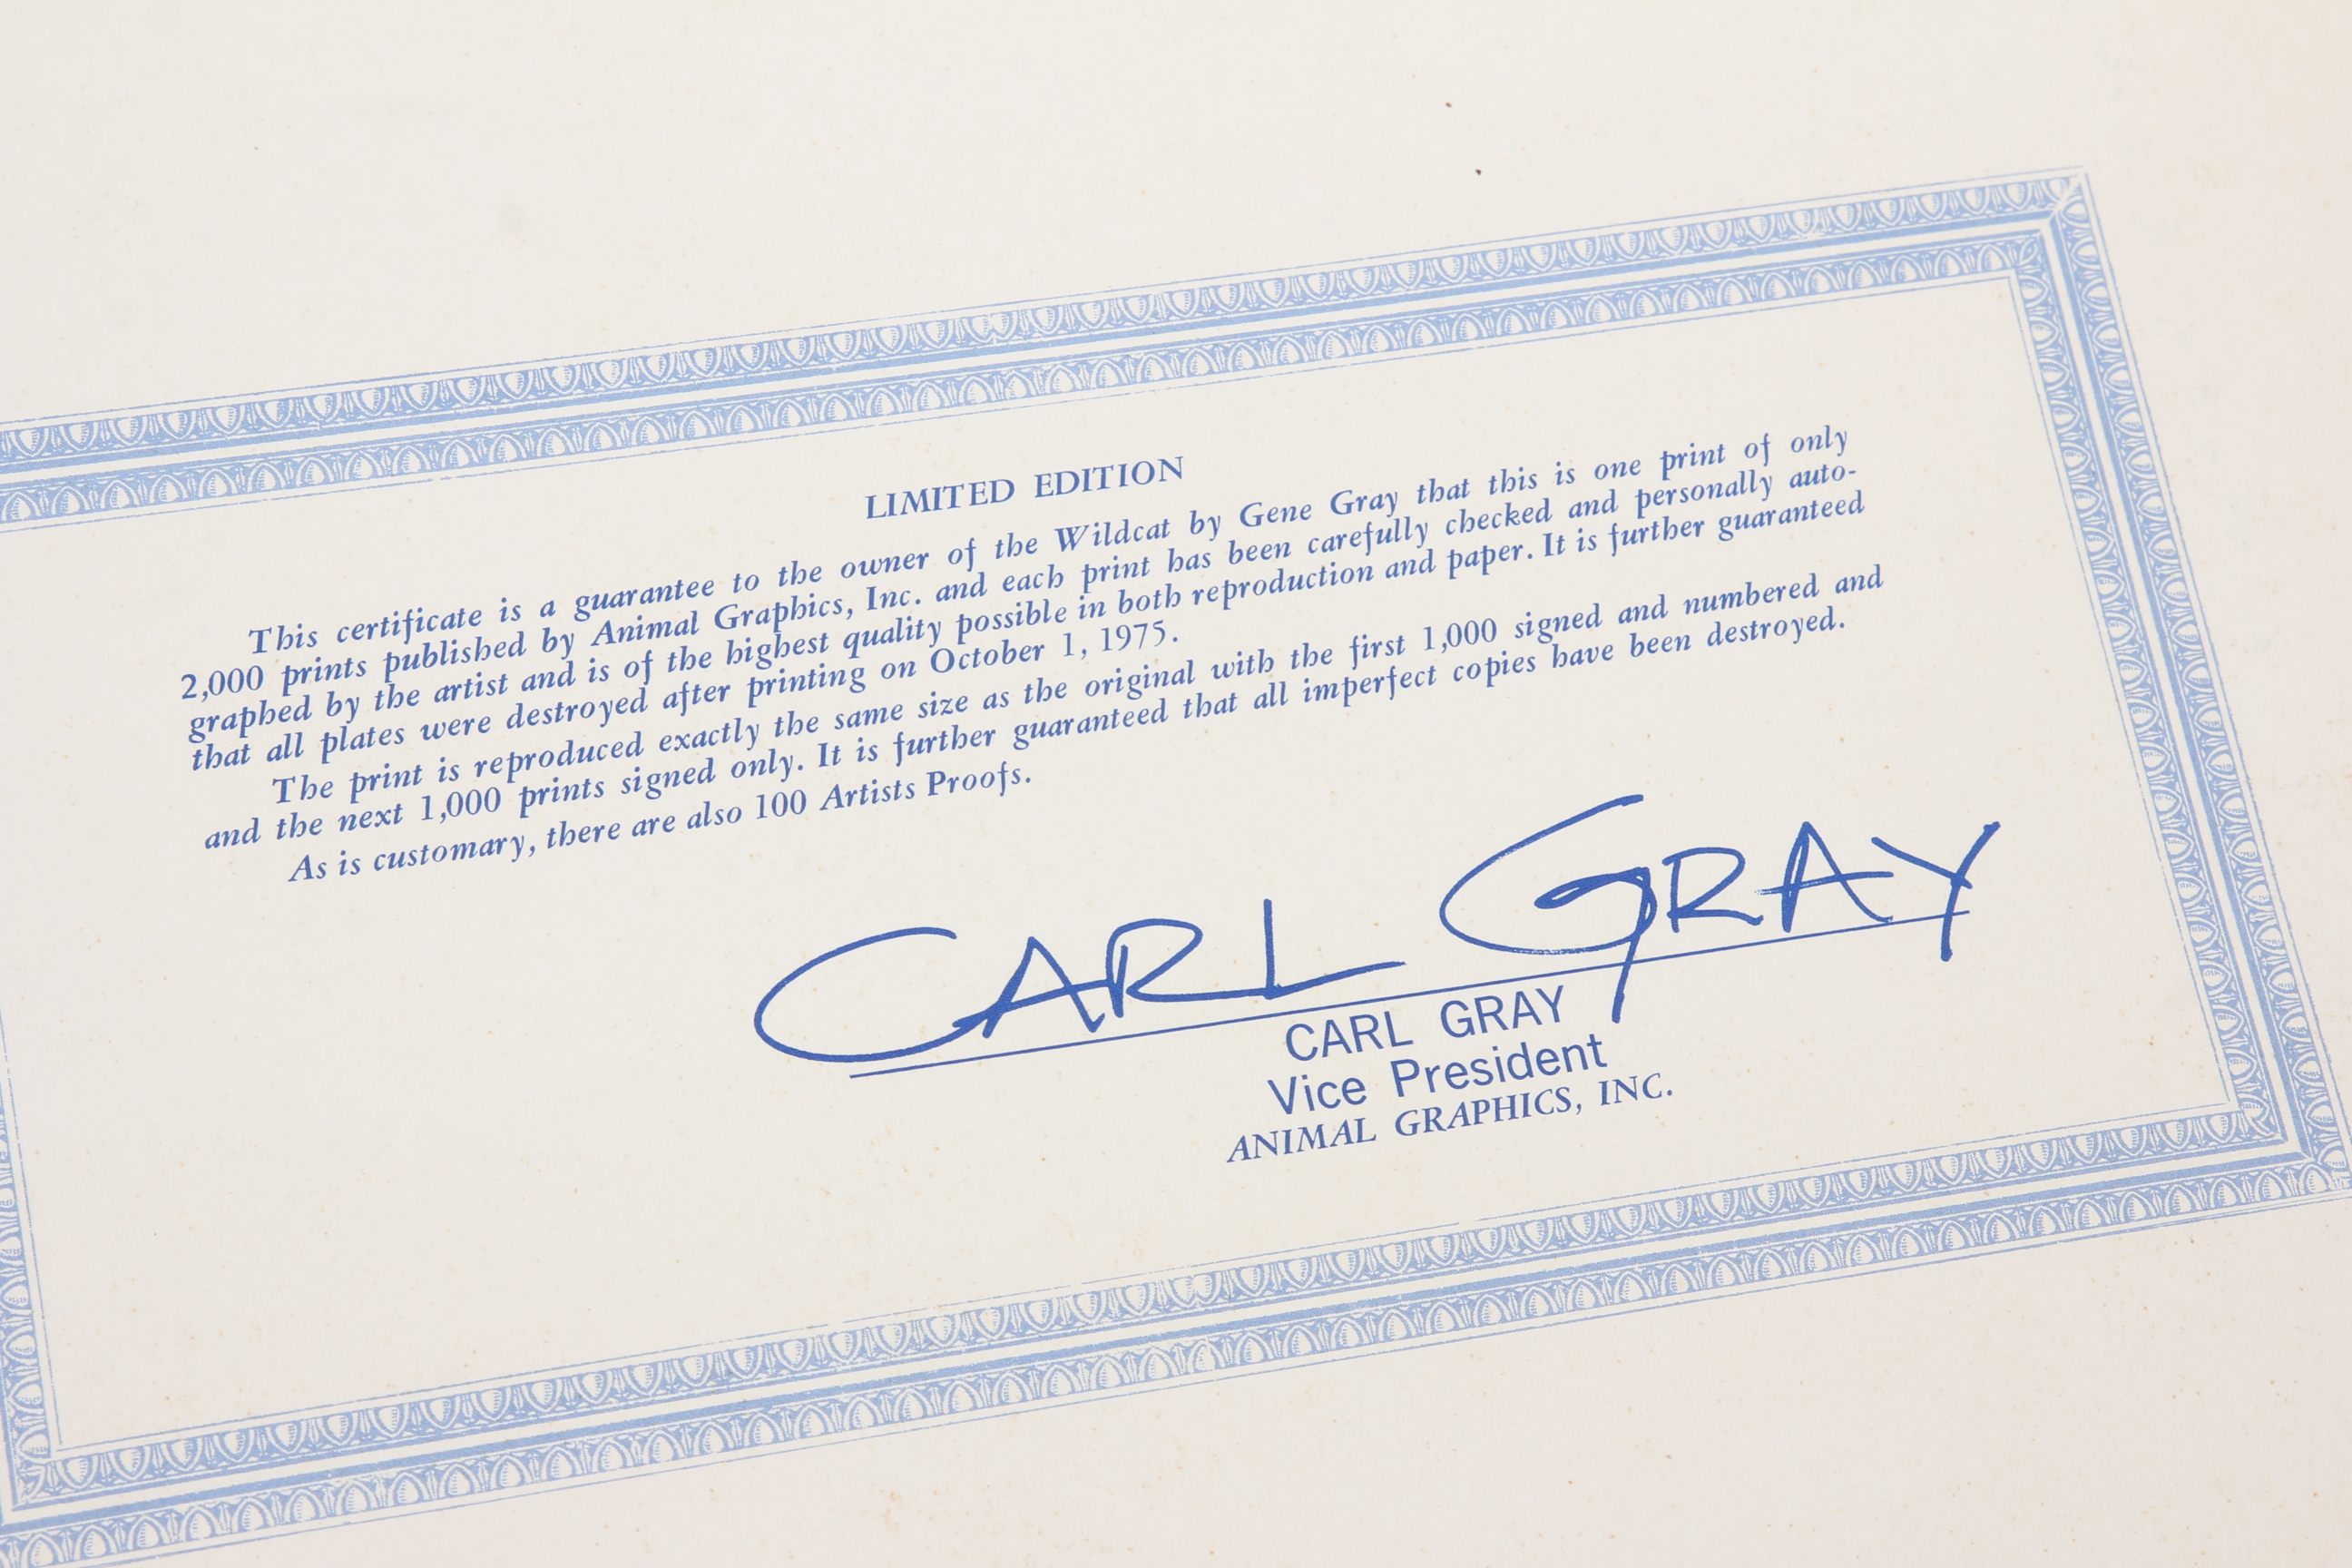 LIMITED EDITION
This certificate is a guarantee to the owner of the Wildcat by Gene Gray that this is one print of only
2,000 prints published by Animal Graphics, Inc. and each print has been carefully checked and personally auto-
graphed by the artist and is of the highest quality possible in both reproduction and paper. It is further guaranteed
that all plates were destroyed after printing on October 1, 1975.
The print is reproduced exactly the same size as the original with the first 1,000 signed and numbered and
and the next 1,000 prints signed only. It is further guaranteed that all imperfect copies have been destroyed.
As is customary, there are also 100 Artists Proofs.
CARL GRAY
CARL GRAY
Vice President
ANIMAL GRAPHICS, INC.